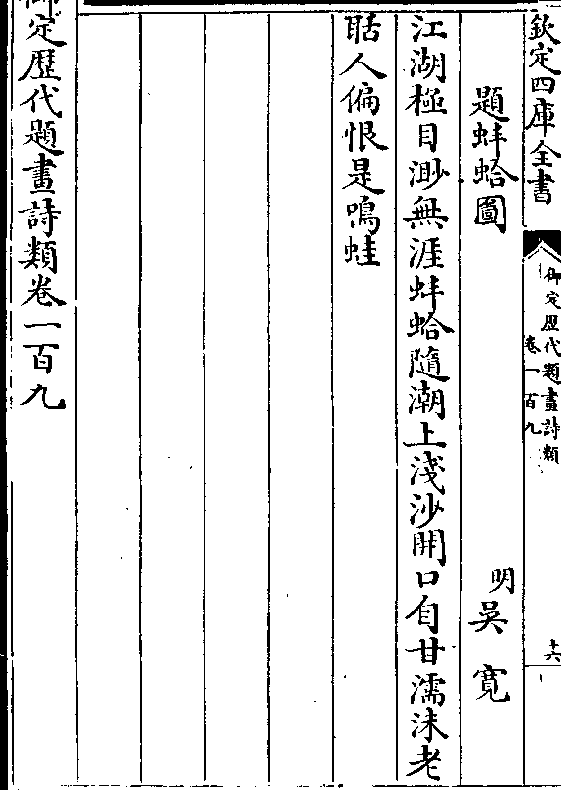 欽定四庫全書
御定歴代題畫詩類
卷一百九
十六
題蚌蛤圖
明吳寛
江湖極目渺無涯蚌蛤隨潮上淺沙開口自甘濡沫老
聒人偏恨是鳴蛙
御定歴代題畫詩類卷一百九